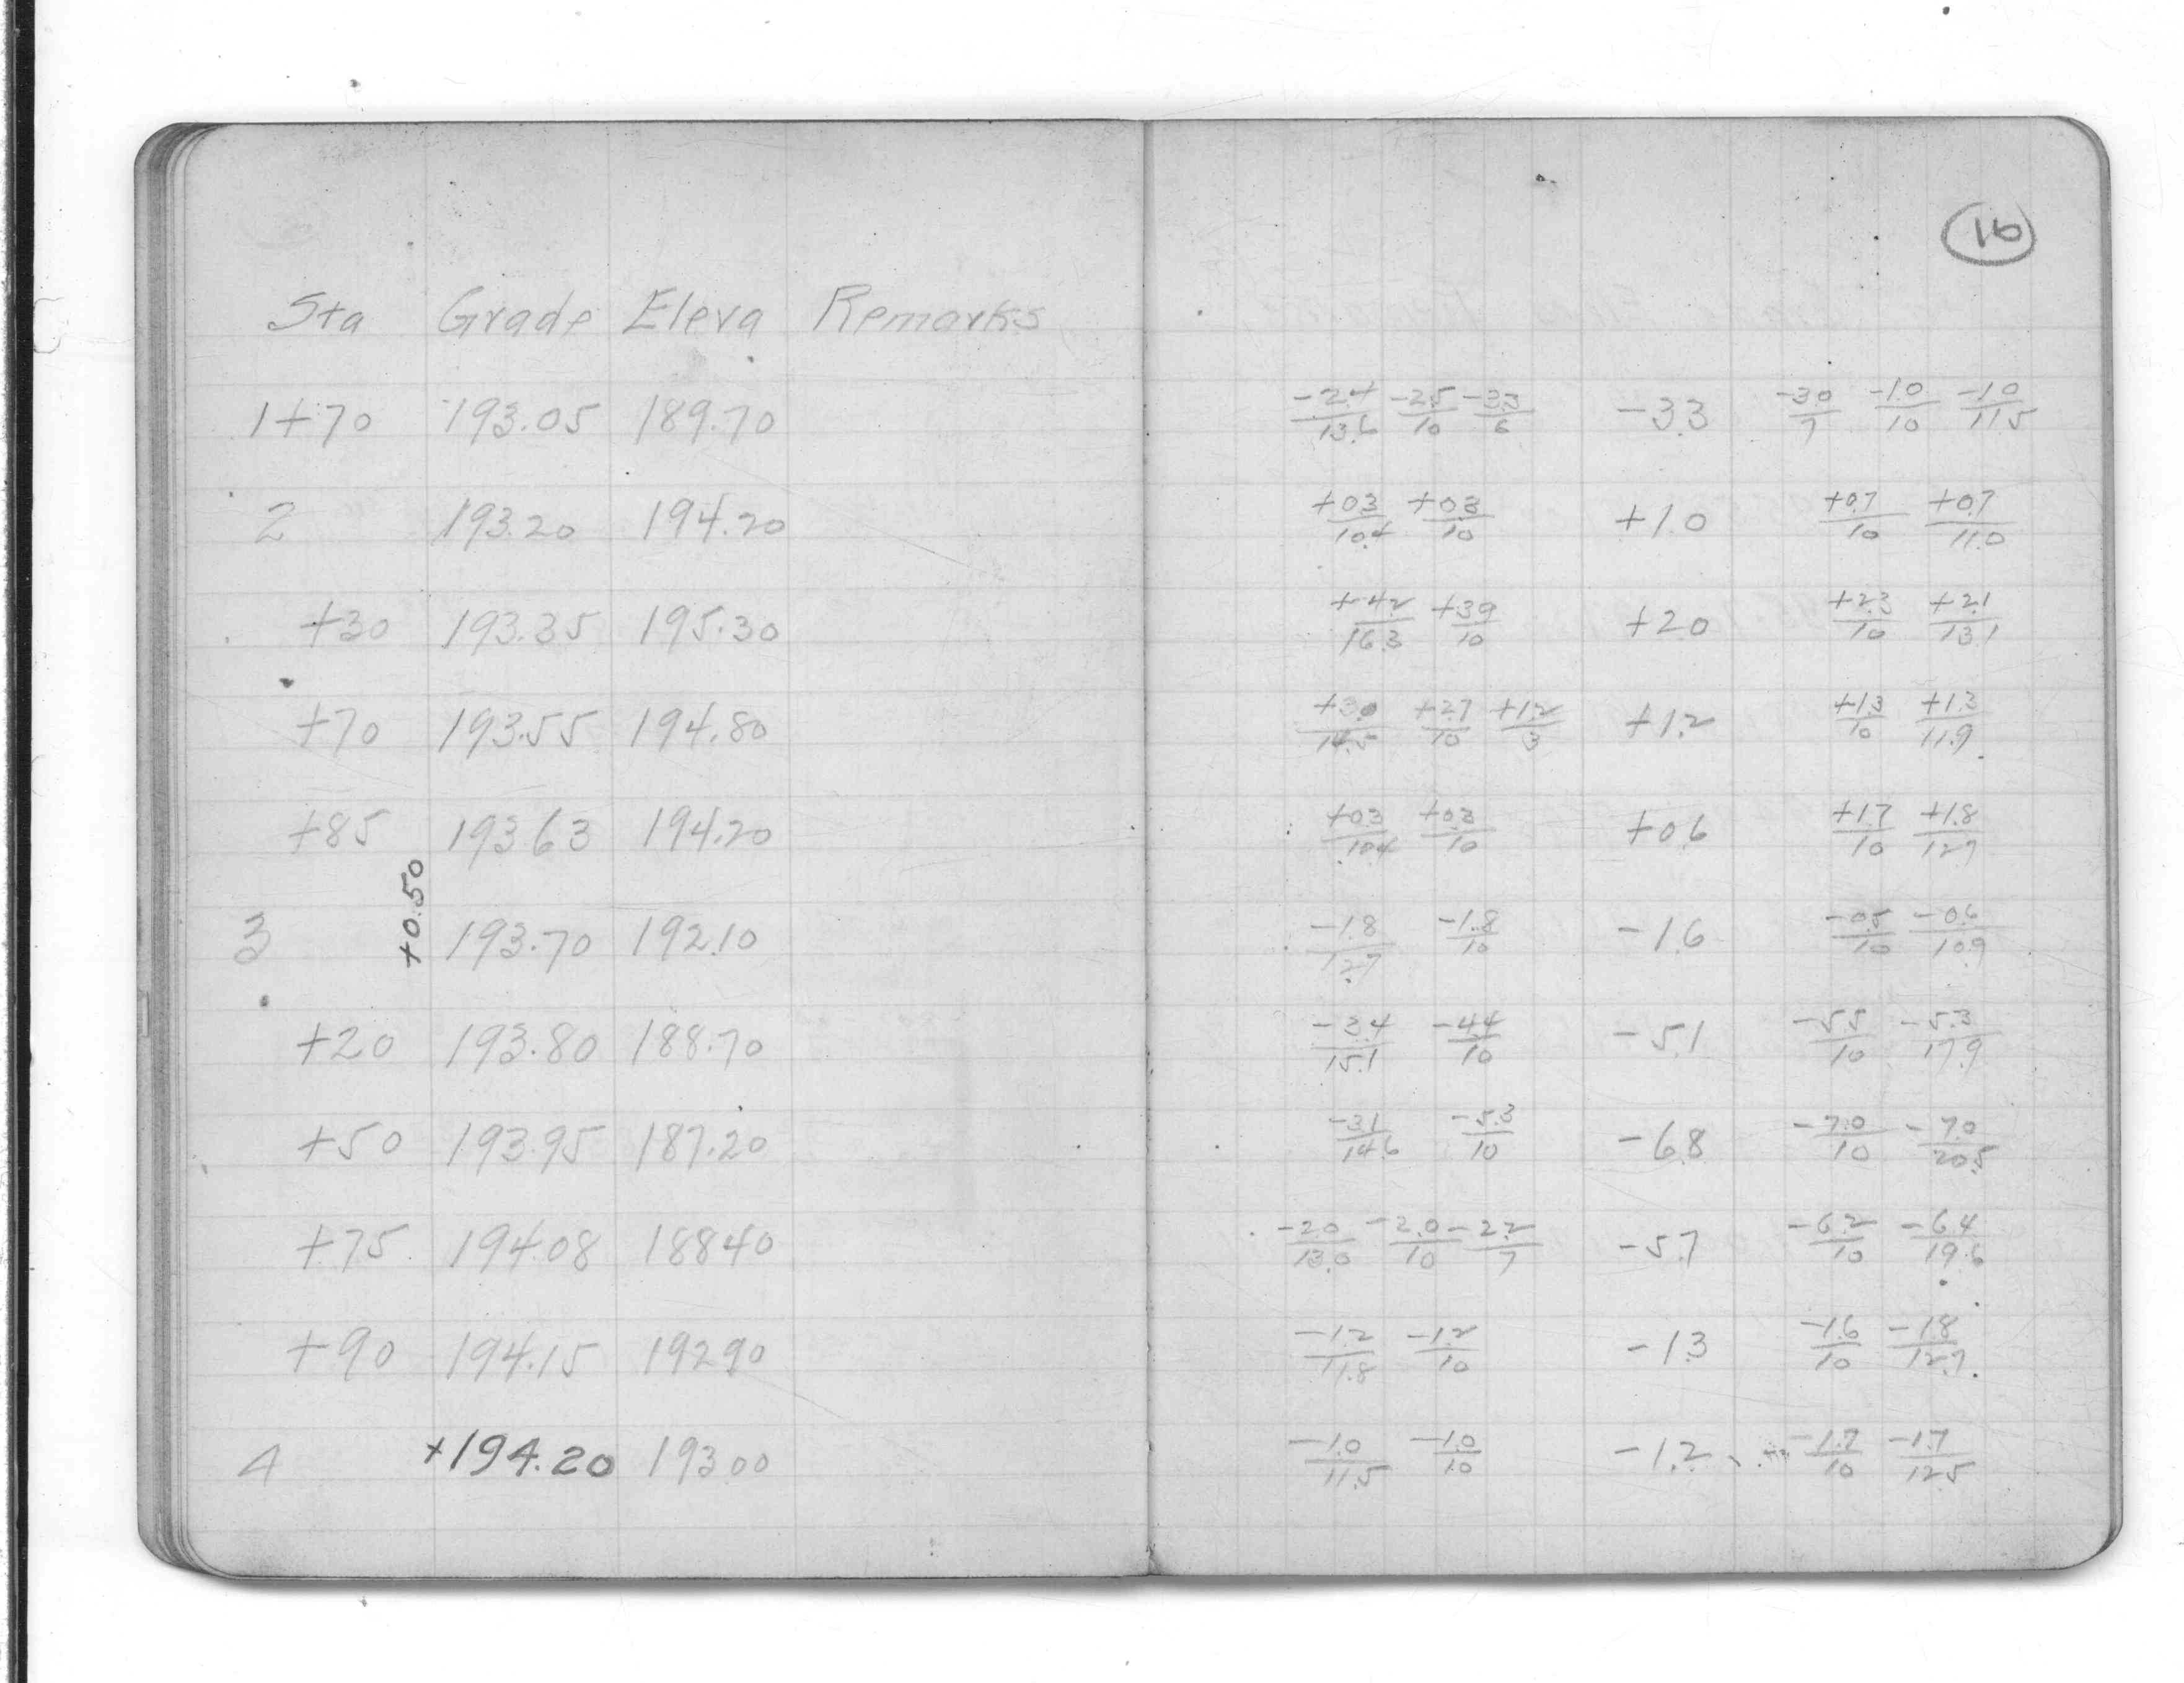 16
Sta Grade Eleva Remarks
1+70 193.05 189.70 -2.4/13.6 -2.5/10 -3.3/6 -3.3 -3.0/7 -1.0/10 -1.0/11.5
2 193.20 194.20 +0.3/10.4 +0.3/10 +1.0 +0.7/10 +0.7/11.0
+30 193.35 195.30 +4.2/16.3 +3.9/10 +2.0 +2.3/10 +2.1/13.1
+70 193.55 194.80 +3.0/14.5 +2.7/10 +1.2/3 +1.2 +1.3/10 +1.3/11.9
+85 193.63 194.20 +0.3/10.4 +0.3/10 +0.6 +1.7/10 +1.8/12.7
+0.50
3 193.70 192.10 -1.8/12.7 -1.8/10 -1.6 -0.5/10 -0.6/10.9
+20 193.80 188.70 -3.4/15.1 -4.4/10 -5.1 -5.5/10 -5.3/17.9
+50 193.95 187.20 -3.1/14.6 -5.3/10 -6.8 -7.0/10 -7.0/20.5
+75 194.08 188.40 -2.0/13.0 -2.0/10 -2.2/7 -5.7 -6.2/10 -6.4/19.6
+90 194.15 192.90 -1.2/11.8 -1.2/10 -1.3 -1.6/10 -1.8/12.7
4 +194.20 193.00 -1.0/11.5 -1.0/10 -1.2 -1.7/10 -1.7/12.5